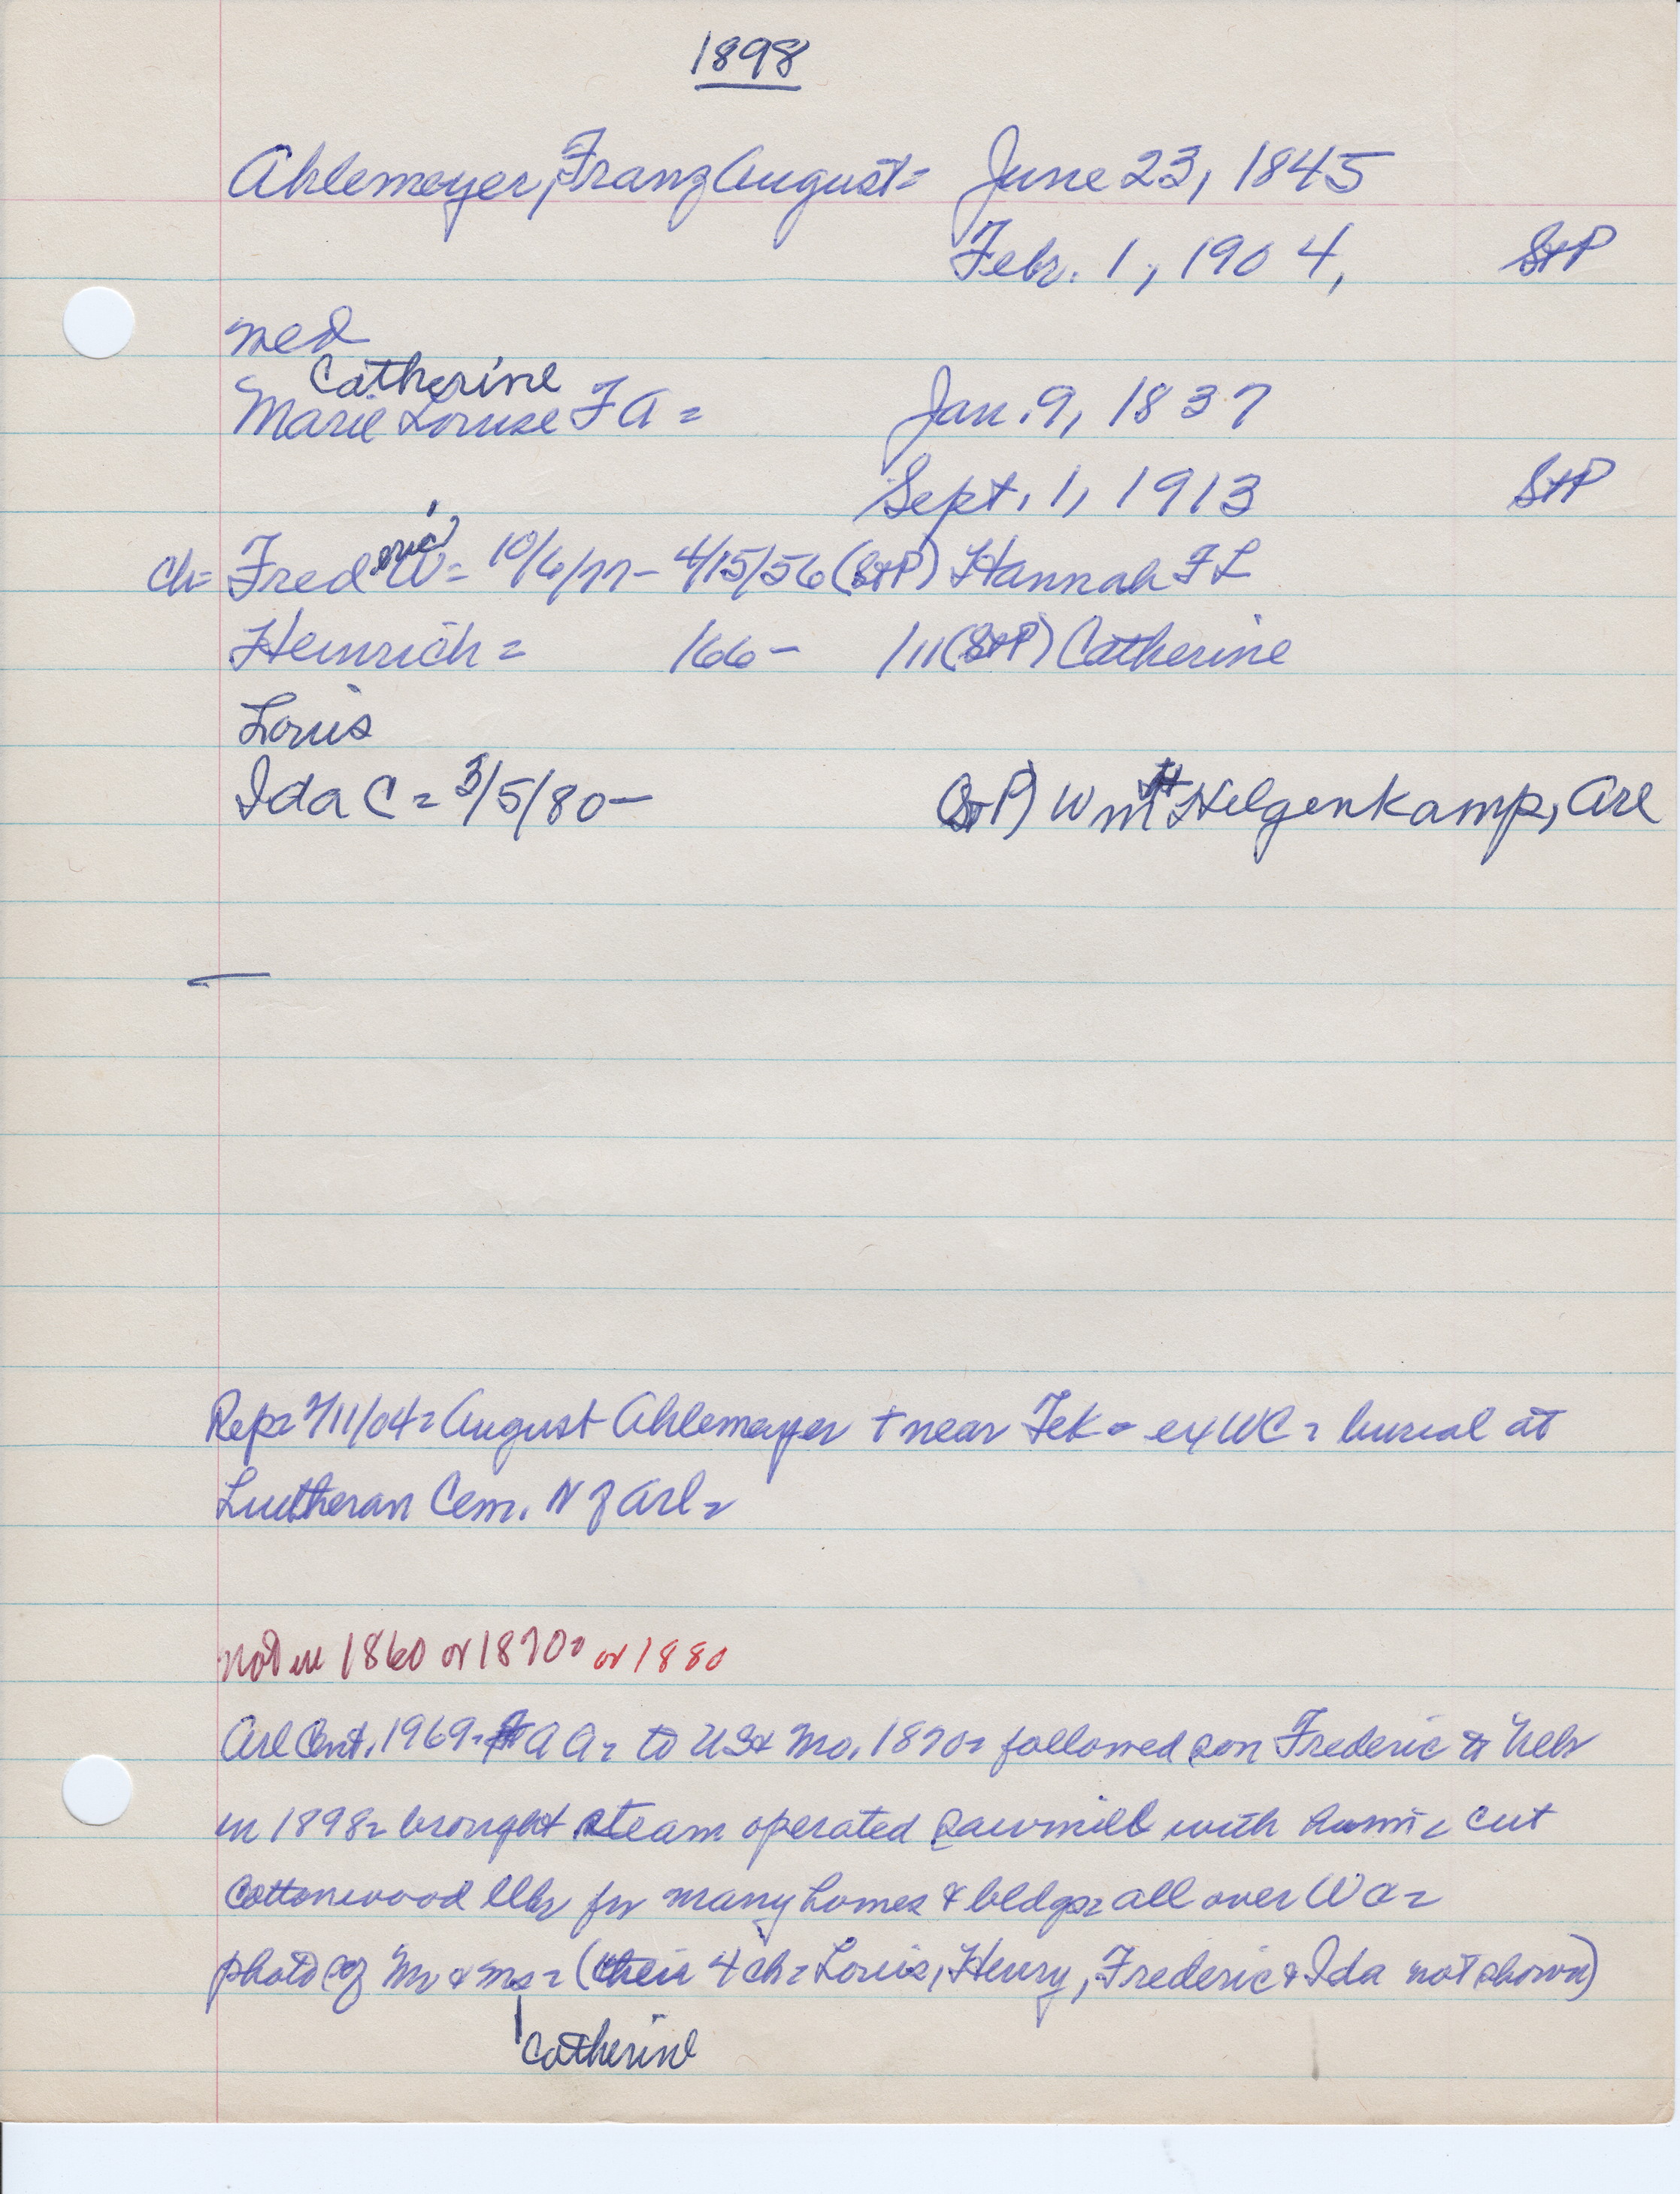 1898
Ahlemeyer, Franz August = June 23, 1845
Febr. 1, 1904, StP
med
Catherine
Marie Louise F A = Jan. 9, 1837
Sept. 1, 1913 StP
ch = Frederic W = 10/6/77 - 4/15/56 (StP) Hannah F L
Heinrich = /66 - /11 (StP) Catherine
Louis
Ida C = 3/5/80 - (StP) Wm H Helgenkamp, Arl
Rep = 2/11/04 = August Ahlemeyer + near Tek = ex WC = burial at
Lutheran Cem. N of Arl =
not in 1860 or 1870 = or 1880
Arl Cent. 1969 = A A = to US & Mo. 1870 = followed son Frederic to Neb
in 1898 = brought steam operated sawmill with him = cut
Cottonwood lbr for many homes & bldgs = all over WC =
photo of Mr & Mrs = (their 4 ch = Louis, Henry, Frederic & Ida not shown)
Catherine